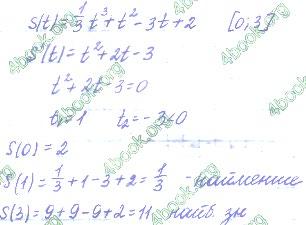 S(t) = 1/3 t³ + t² - 3t + 2 [0; 3]
S'(t) = t² + 2t - 3
t² + 2t - 3 = 0
t₁ = 1 t₂ = -3 < 0
S(0) = 2
S(1) = 1/3 + 1 - 3 + 2 = 1/3 - найменше
S(3) = 9 + 9 - 9 + 2 = 11 найб. зн